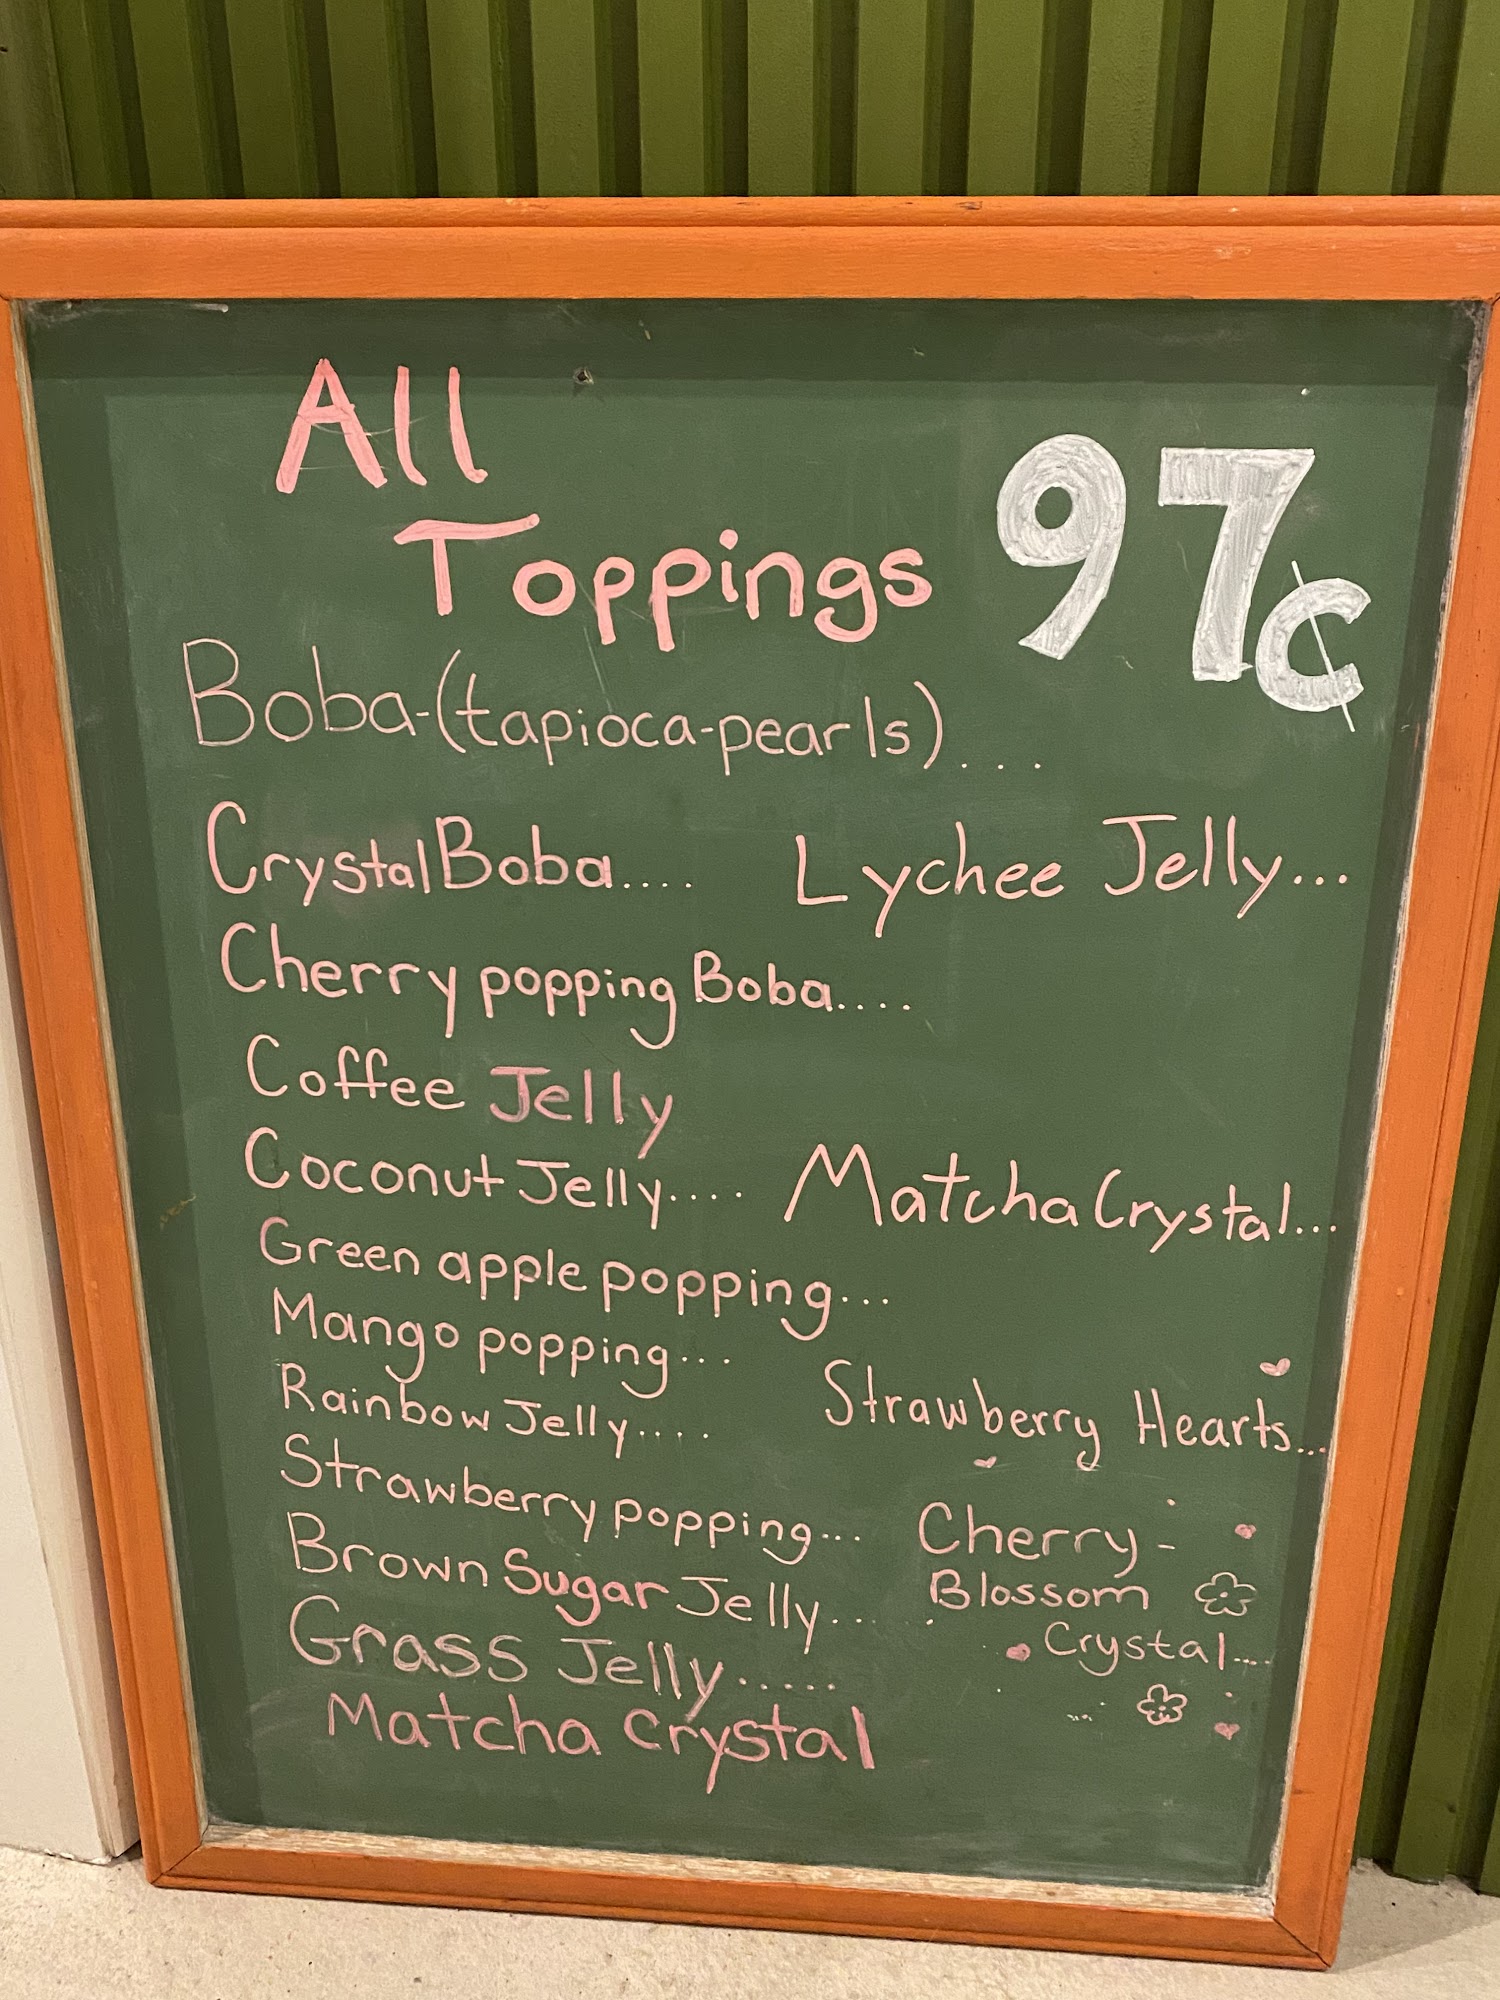 All
Toppings 97¢
Boba-(tapioca-pearls)...
Crystal Boba.... Lychee Jelly...
Cherry popping Boba....
Coffee Jelly
Coconut Jelly.... Matcha Crystal...
Green apple popping...
Mango popping...
Rainbow Jelly.... Strawberry Hearts...
Strawberry popping... Cherry-
Brown Sugar Jelly... Blossom
Grass Jelly..... Crystal....
Matcha Crystal